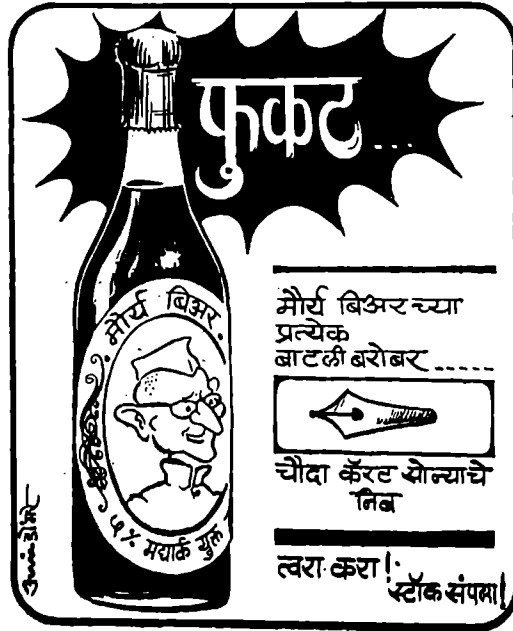 फुकट....
मौर्य बिअर.
५% मद्यार्क युक्त
मौर्य बिअरच्या
प्रत्येक
बाटली बरोबर.....
चौदा कॅरट सोन्याचे
निब
त्वरा करा!
स्टॉक संपला!